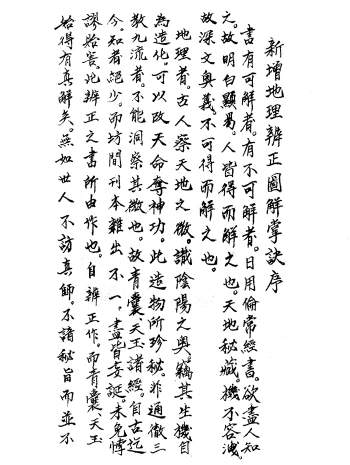 新增地理辨正圖解掌訣序
書有可解者。有不可解者。日用倫常經書。欲盡人知
之。故明白顯易。人皆得而解之也。天地秘藏。機不容洩
故深文奥義。不可得而解之也。
地理者。古人察天地之微。識陰陽之奧。竊其生機自
為造化。可以改天命奪神功。此造物所珍秘。非通徹三
教九流者。不能洞察其微也。故青囊、天玉諸經。自古迄
今。知者絕少。而坊間刊本雜出不一。盡皆妄誕。未免悖
謬始害。此辨正之書所由作也。自辨正作。而青囊、天玉
始得有真解矣。無如世人不訪真師。不諳秘旨而並不